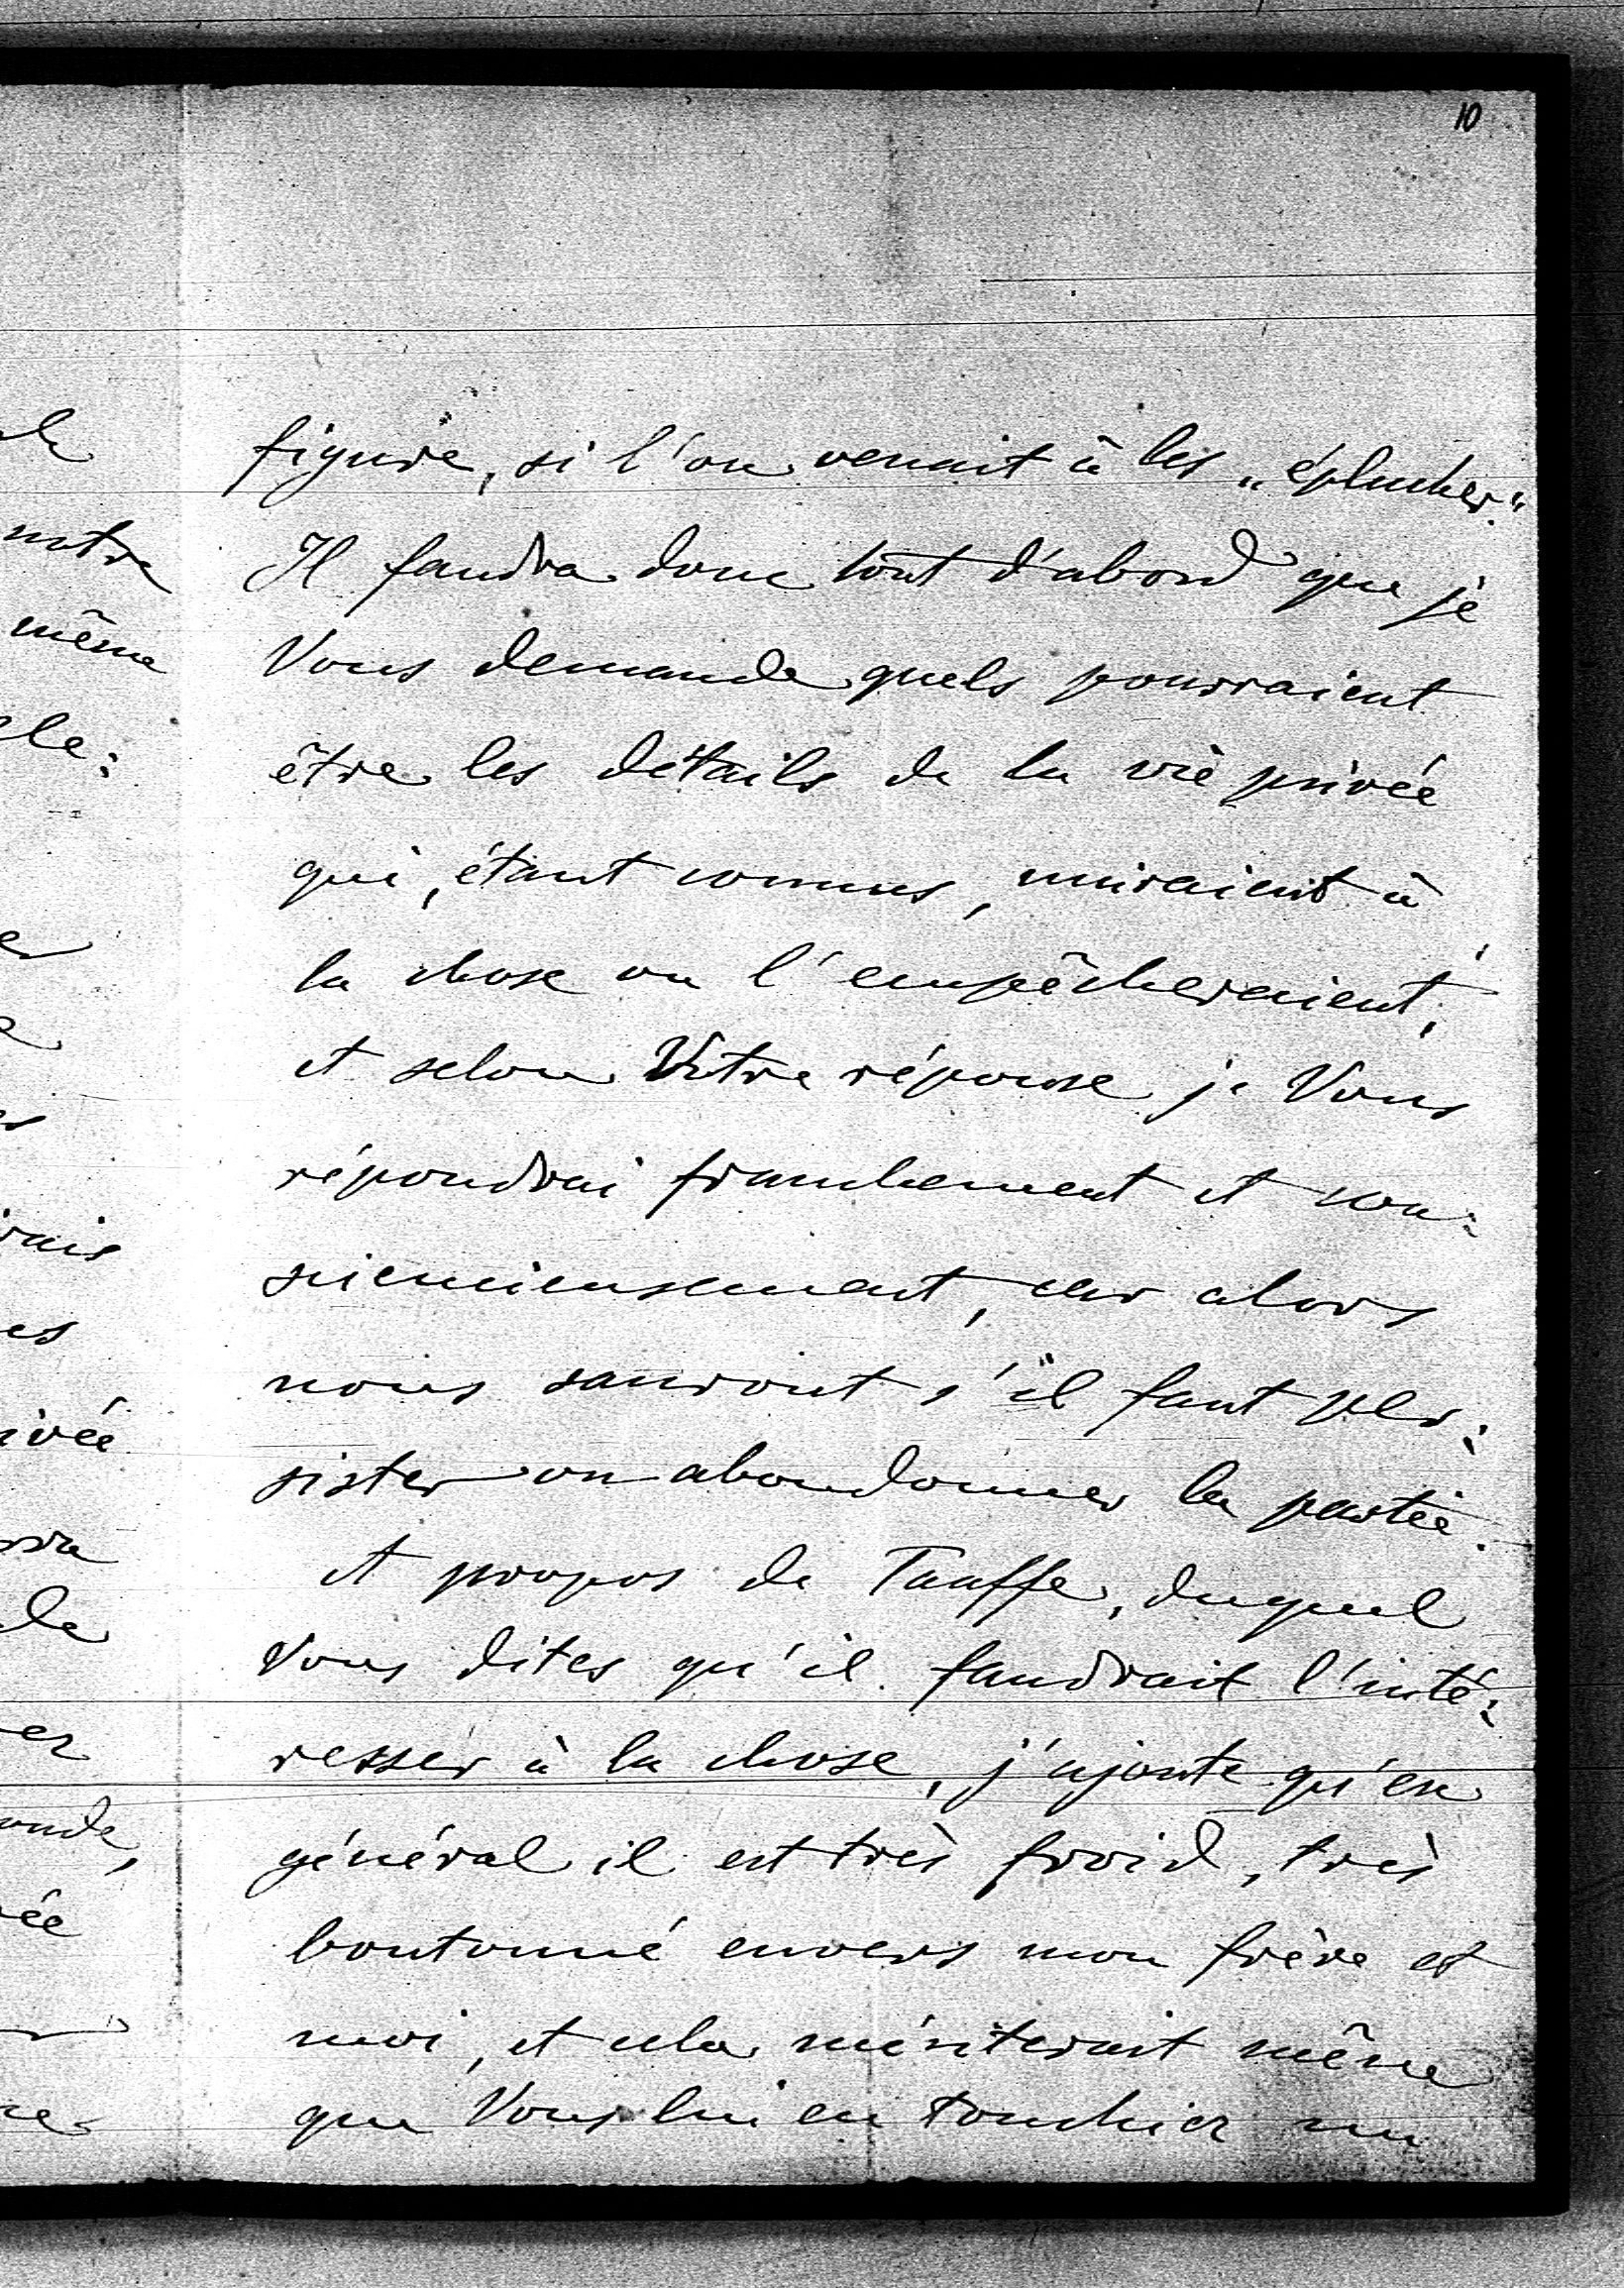 10
figure, si l'on venait à les „éplucher."
Il faudra donc tout d'abord que je
Vous demande quels pourraient
être les détails de la vie privée
qui, étant connus, nuiraient à
la chose ou l'empêcheraient,
et selon Votre réponse je Vous
répondrai franchement et con:
sciencieusement, car alors
nous sauront s'il faut per:
sister ou abandonner la partie.
A propos de Taaffe, duquel
Vous dites qu'il faudrait l'inté:
resser à la chose, j'ajoute qu'en
général il est très froid, très
boutonné envers mon frère et
moi, et cela mériterait même
que Vous lui en touchiez un
notre
même